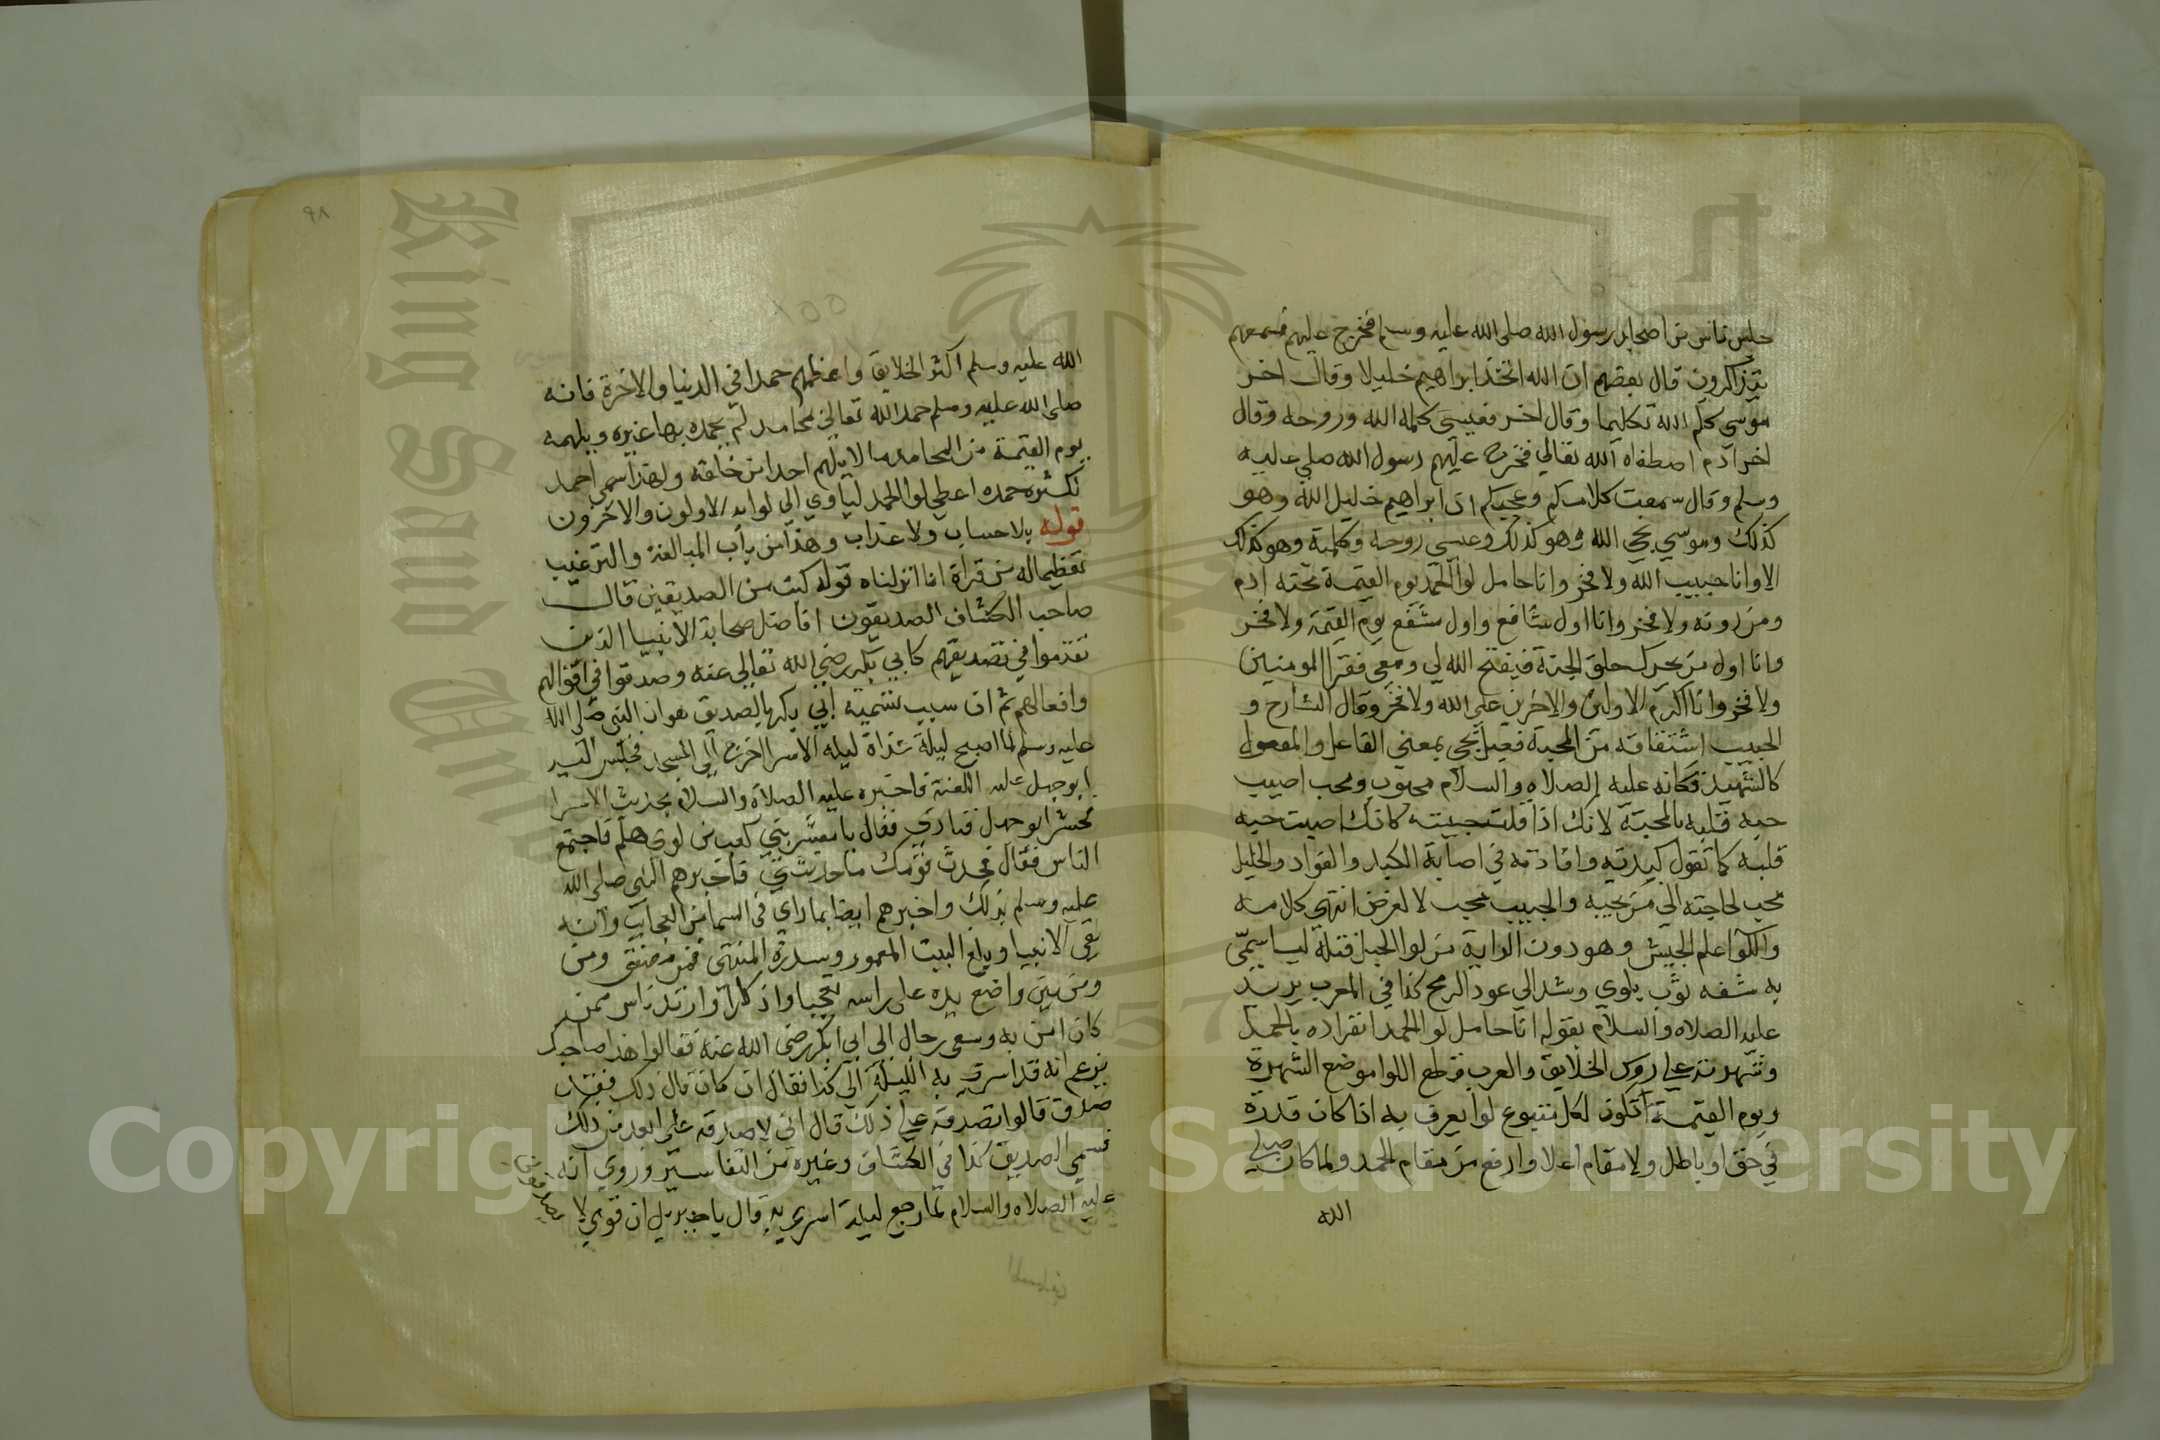 جلس ناس من اصحاب رسول الله صلى الله عليه وسلم فخرج عليهم فسمعهم
يتذاكرون قال بعضهم ان الله اتخذ ابراهيم خليلا وقال اخر
موسى كلم الله تكليما وقال اخر فعيسى كلمة الله وروحه وقال
اخر آدم اصطفاه الله تعالى فخرج عليهم رسول الله صلى عليه
وسلم وقال سمعت كلامكم وعجبكم ان ابراهيم خليل الله وهو
كذلك وموسى نجي الله وهو كذلك وعيسى روحه وكلمته وهو كذلك
الا وانا حبيب الله ولا فخر وانا حامل لوا الحمد يوم القيمة تحته ادم
ومن دونه ولا فخر وانا اول شافع واول مشفع يوم القيمة ولا فخر
وانا اول من يحرك حلق الجنة فيفتح الله لي ومعي فقرا المومنين
ولا فخر وانا اكرم الاولين والاخرين على الله ولا فخر وقال الشارح و
الحبيب اشتقاقه من المحبة فعيل يجي بمعنى الفاعل والمفعول
كالشهيد فكانه عليه الصلاه والسلام محبوب ومحب اصيب
حبه قلبه بالمحبة لانك اذا قلت حببته كانك اصبت حبه
قلبه كما تقول كبدته وافادته في اصابة الكبد والفواد والخليل
محب لحاجته الى من يحبه والحبيب محب لا لغرض انتهى كلامه
واللوا علم الجيش وهو دون الراية من لوا الحبل فتله ليا سمّى
به شقه ثوب يلوي وشد الى عود الرمح كذا في المغرب يريد
عليه الصلاه والسلام بقوله انا حامل لوا الحمد انفراده بالحمد
وشهرته على روس الخلايق والعرب قطع اللوا موضع الشهرة
ويوم القيمة تكون لكل متبوع لوا يعرف به اذا كان قدره
في حق او باطل ولا مقام اعلا وارفع من مقام الحمد ولما كان صلى
الله
٩٨
الله عليه وسلم اكثر الخلايق واعظمهم حمدا في الدنيا والاخرة فانه
صلى الله عليه وسلم حمد الله تعالى بمحامد لم يحمده بها غيره ويلهمه
يوم القيمة من المحامد ما لا يلهم احدا من خلقه ولهذا سمي احمد
لكثرة حمده اعطي لوا الحمد ليأوي الى لوايه الاولون والاخرون
قوله بلا حساب ولا عذاب وهذا من باب المبالغة والترغيب
تعظيما له من قراة انا انزلناه قوله كتب من الصديقين قال
صاحب الكشاف الصديقون افاضل صحابة الانبيا الذين
تقدموا في تصديقهم كابي بكر رضي الله تعالى عنه وصدقوا في اقوالهم
وافعالهم ثم ان سبب تسمية ابي بكر بالصديق هو ان النبي صلى الله
عليه وسلم لما اصبح ليلة غداة ليلة الاسرا خرج الى المسجد فجلس اليه
ابو جهل عليه اللعنة فاخبره عليه الصلاة والسلام بحديث الاسرا
فحشر ابو جهل فنادى فقال يا معشر بني كعب بن لوي هلم فاجتمع
الناس فقال فحدث قومك ما حدثتني فاخبرهم النبي صلى الله
عليه وسلم بذلك واخبرهم ايضا بما راي في السما من العجايب وانه
لقى الانبيا وبلغ البيت المعمور وسدرة المنتهى فمن مصفق ومن
ومن بين واضع يده على راسه تعجبا وانكارا وارتد ناس ممن
كان امن به وسعى رجال الى ابى بكر رضى الله عنه فقالوا هذا صاحبك
يزعم انه قد اسرى به الليلة الى كذا فقال ان كان قال ذلك فقد
صدق قالوا تصدقه على ذلك قال اني لاصدقه على ابعد من ذلك
فسمي الصديق كذا في الكشاف وغيره من التفاسير وروي انه
عليه الصلاه والسلام لما رجع ليلة اسري به قال يا جبريل ان قومي لا
Copyright © King Saud University
King Saud University